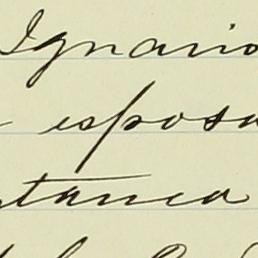 Ignacio
esposa
stancia